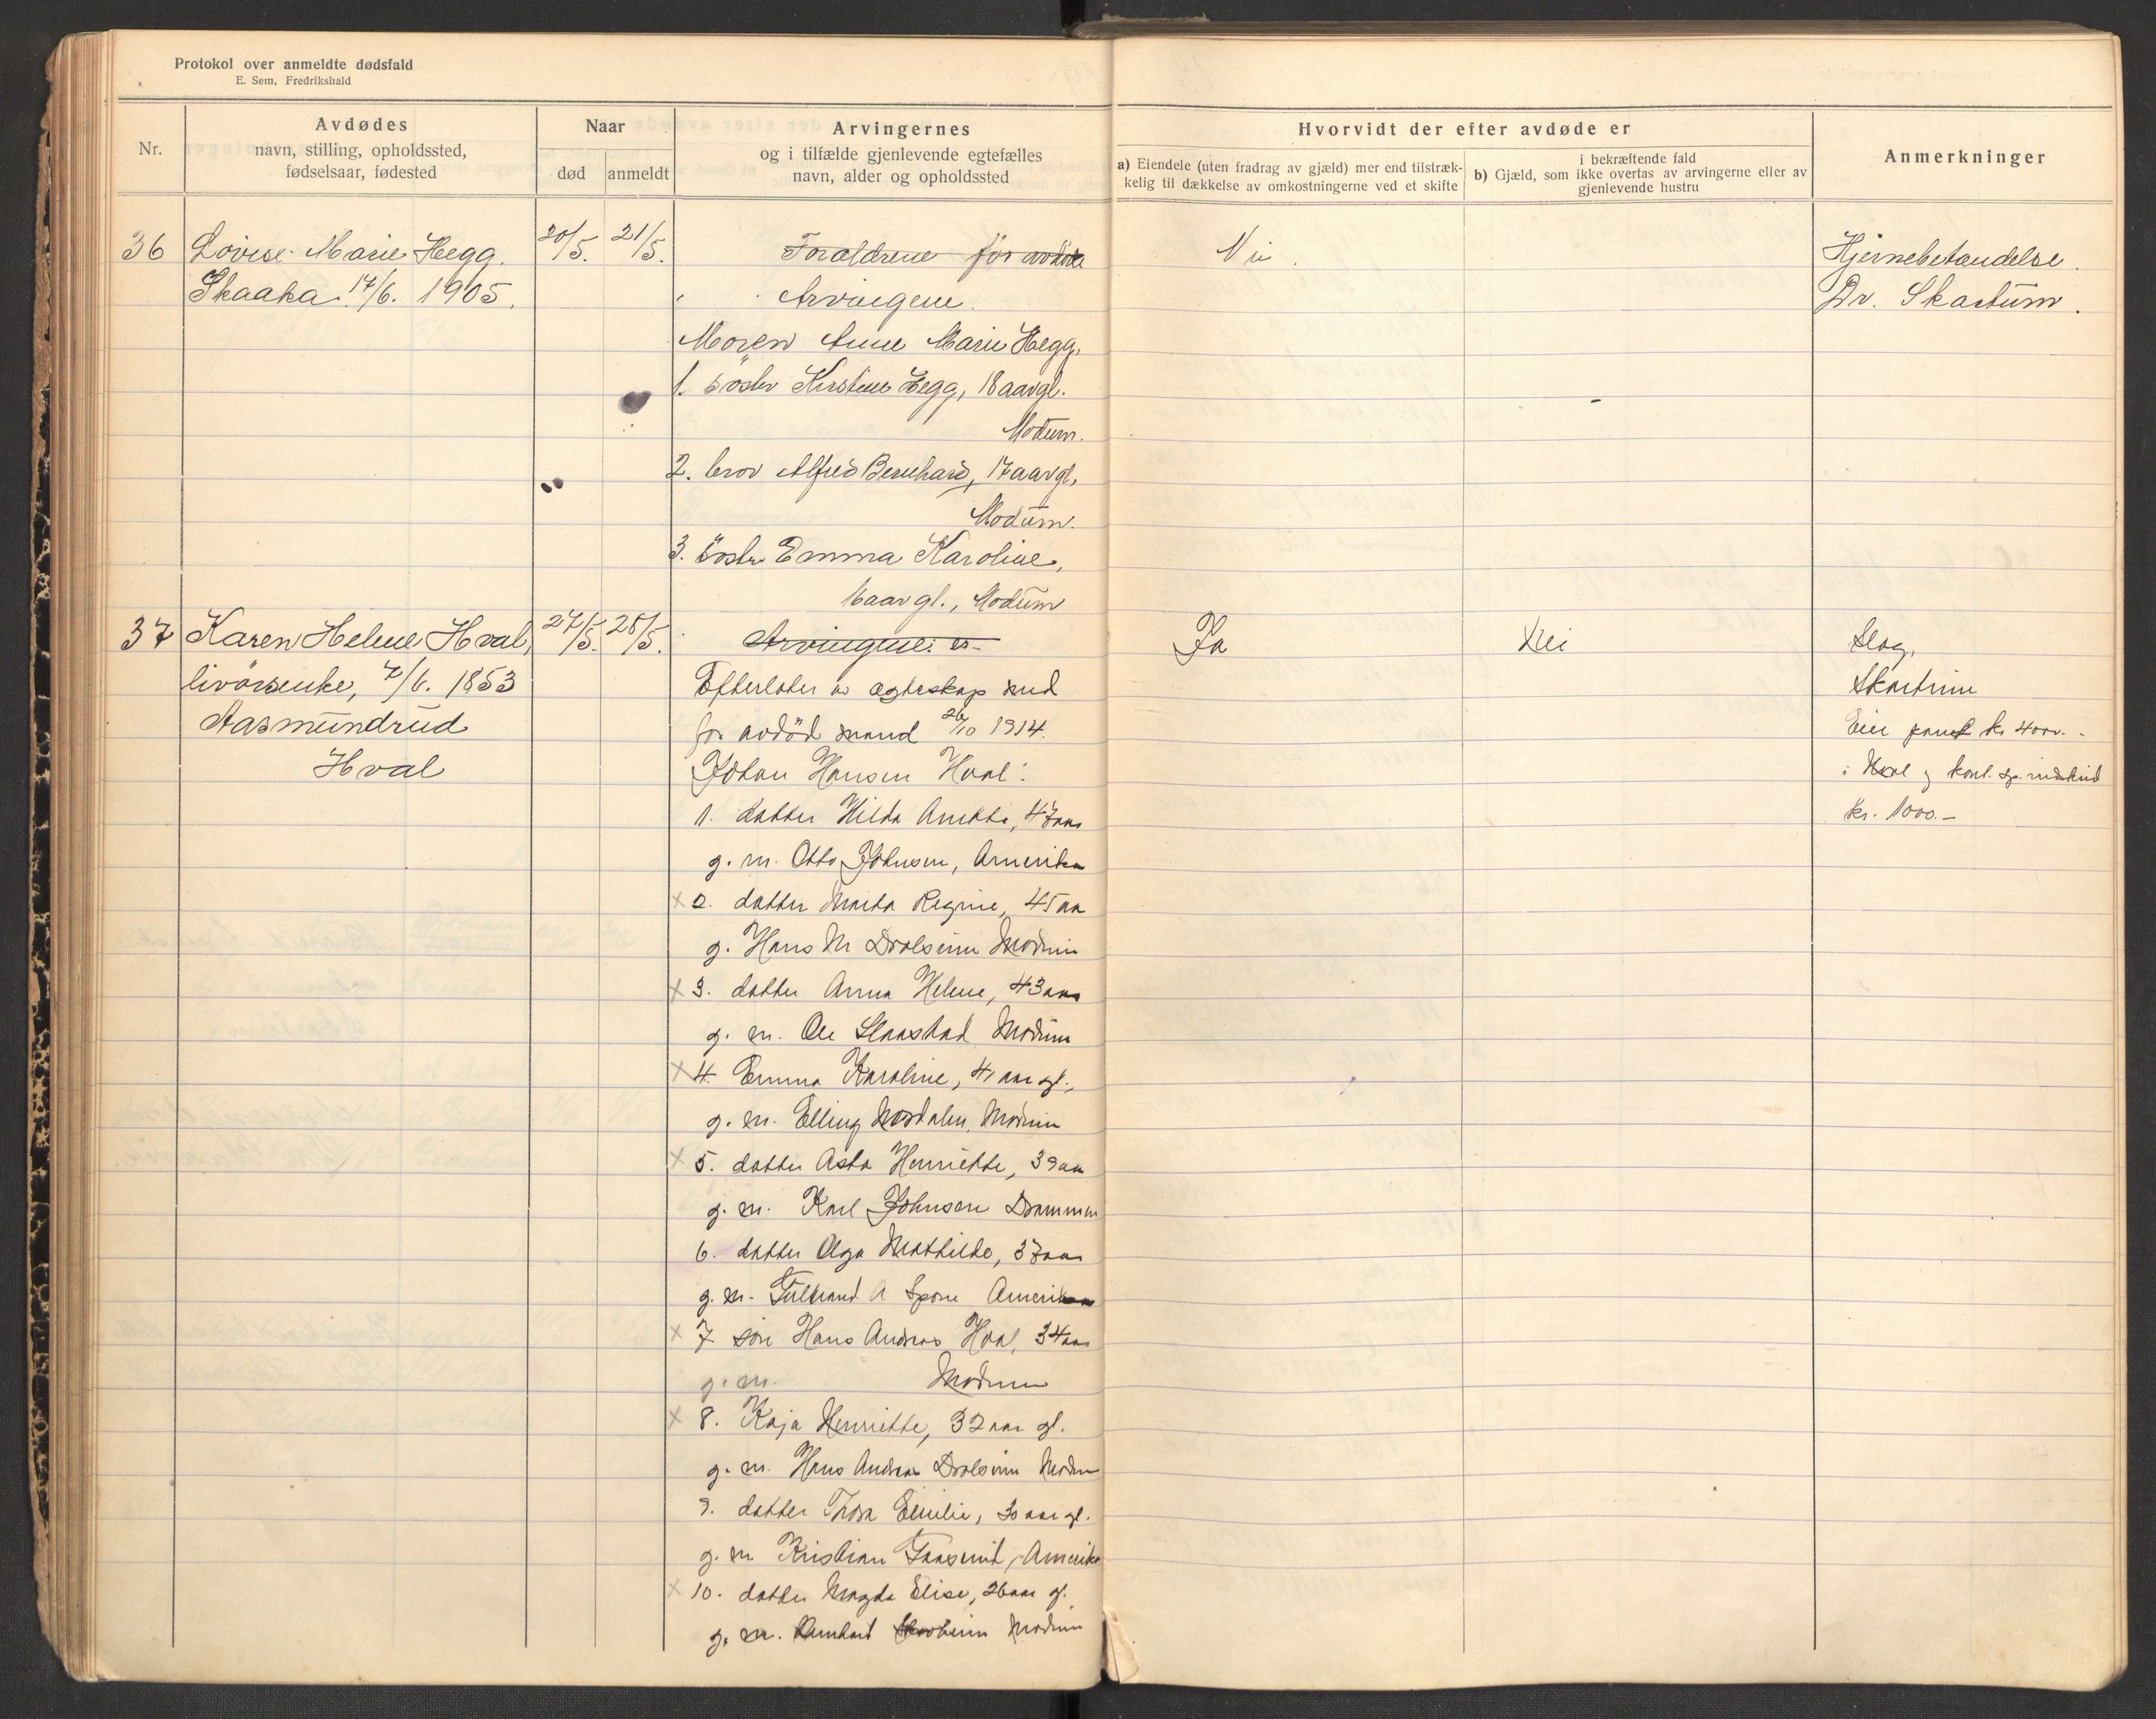 Protokol over anmeldte dødsfald
E. Sem, Fredrikshald
Nr.
Avdødes
navn, stilling, opholdssted,
fødselsaar, fødested
Naar
død
anmeldt
Arvingernes
og i tilfælde gjenlevende egtefælles
navn, alder og opholdssted
Hvorvidt der efter avdøde er
a) Eiendele (uten fradrag av gjæld) mer end tilstræk-
kelig til dækkelse av omkostningerne ved et skifte
i bekræftende fald
b) Gjæld, som ikke overtas av arvingerne eller av
gjenlevende hustru
Anmerkninger
36
Lovise Marie Hegg.
Skaaka 17/6. 1905.
20/5.
21/5.
Foræeldrene før avdøde
Arvingene.
Moren Anne Marie Hegg,
1. søster Kirstine Hegg, 18 aar gl.
Modum.
2. bror Alfred Bernhard, 17 aar gl,
Modum.
3. søster Emma Karoline,
6 aar gl., Modum
Nei.
Hjernebetændelse.
Dr. Skartum.
37
Karen Helene Hval,
livørsenke, 7/6. 1853
Aasmundrud
Hval
27/5.
28/5.
Arvingene: er
Efterlater av egteskap med
før avdød mand 26/10 1914.
Johan Hansen Hval:
1. datter Hilda Anette, 47 aar
g. m. Otto Johnsen, Amerika
x 2. datter Marta Regine, 45 aa
g. Hans M Drolsum Modum
x 3. datter Anna Helene, 43 aar
g. m. Ole Slaastad Modum
x 4. Emma Karoline, 41 aar gl.,
g. m. Elling Mordalen, Modum
x 5. datter Asta Henriette, 39 aa
g. m. Karl Johnsen Drammen
6. datter Olga Mathilde, 37 aar
g. m. Gulbrand A Spone Amerika
x 7 søn Hans Andreas Hval, 34 aar
g. m. Modum
x 8. Kaja Henriette, 32 aar gl.
g. m. Hans Andreas Drolsum Modum
9. datter Thora Emilie, 30 aar gl.
g. m Kristian, Amerika
x 10. datter Magda Elise, 26 aar gl.
g. m. Modum
Ja
Nei
Slag,
Skartum
Eier pant kr 4000.-
i Hval og kont. sp. indskud
kr. 1000.-